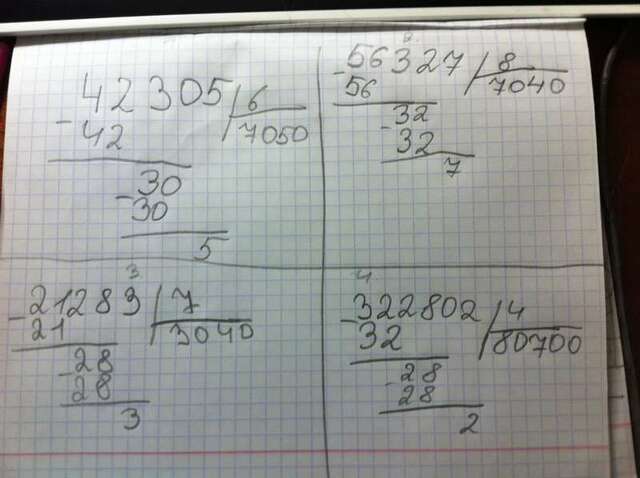 42305/6
-42 7050
-30
30
5
-56327/8
56 7040
-32
32
7
3
-21283/7
21 3040
-28
28
3
4
-322802/4
32 80700
-28
28
2